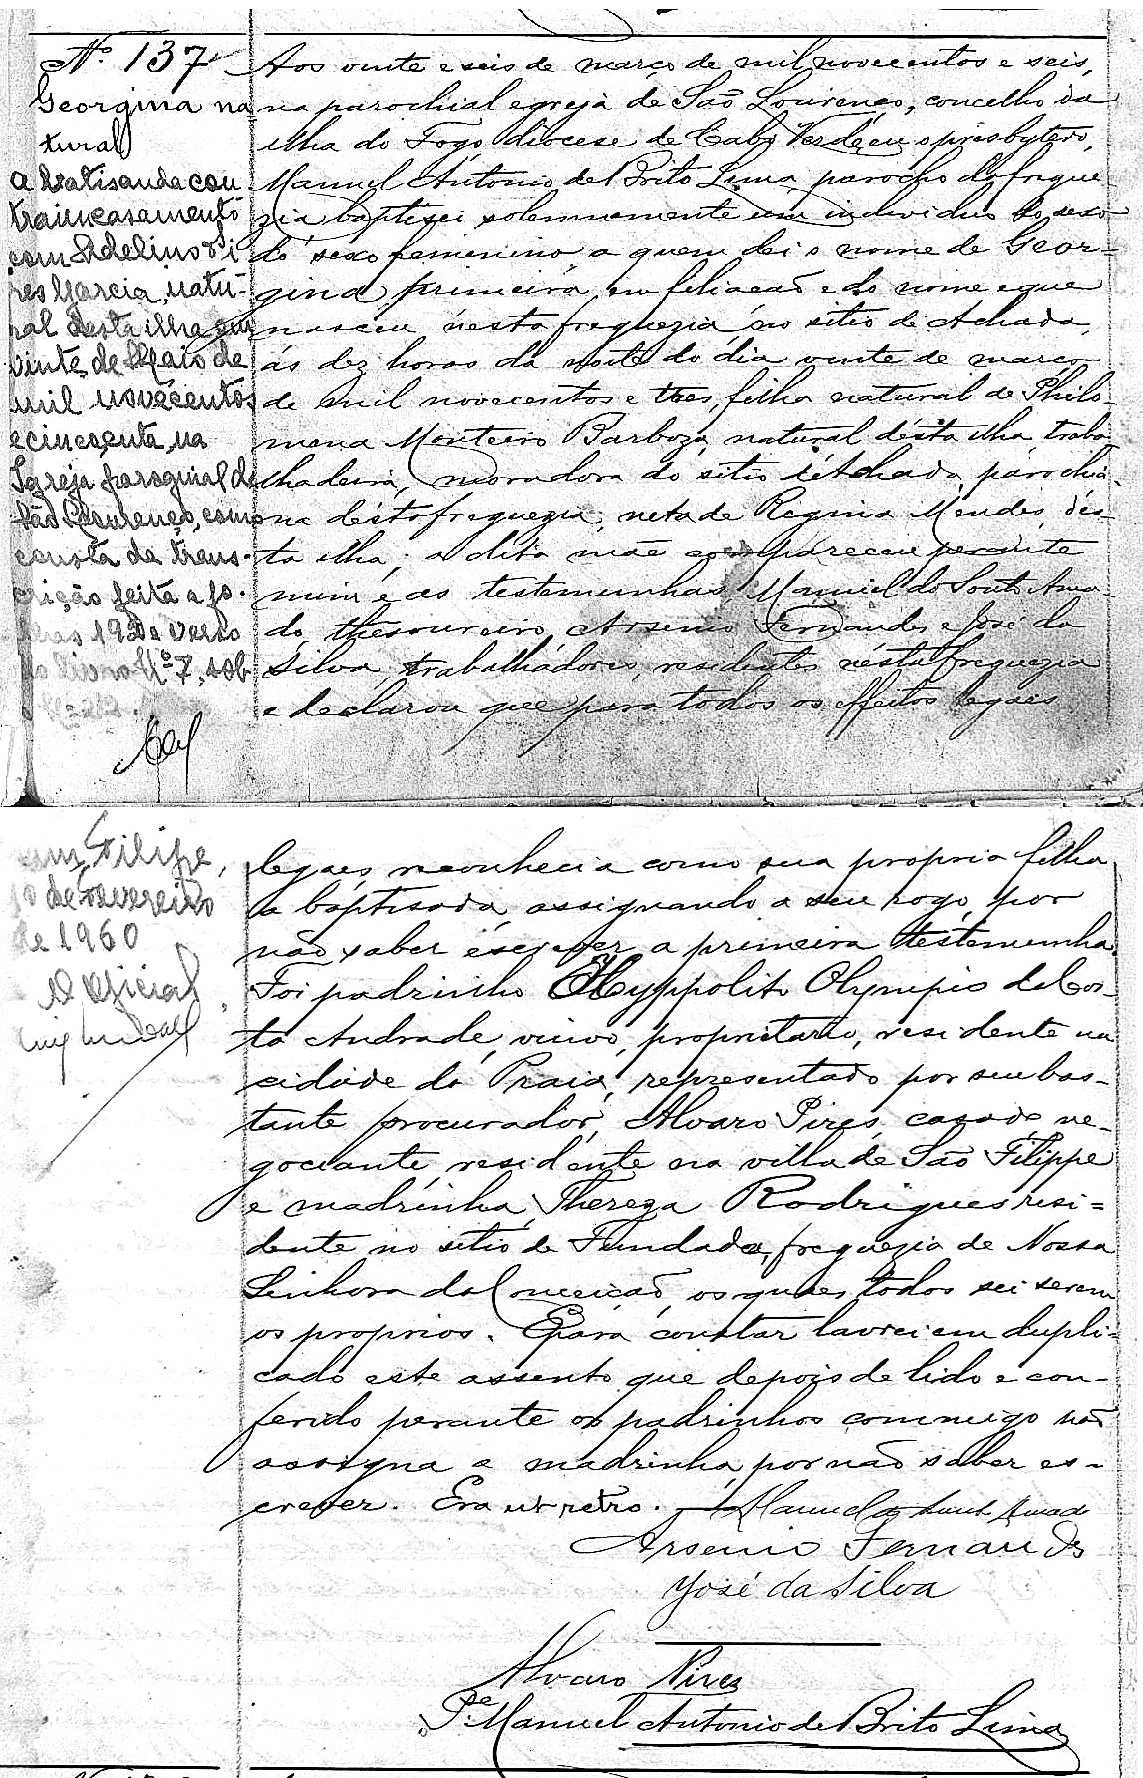 Nº 137
Georgina na
tural
A batisanda con
traiu casamento
com Adelino Pi
res Garcia, natu-
ral desta ilha em
vinte de Maio de
mil novecentos
e cincoenta, na
Igreja paroquial de
São Lourenço, como
consta da trans-
crição feita a fo-
lhas 192 verso
do livro Nº 7, sob
Aos vinte e seis de março de mil novecentos e seis,
na parochial egreja de São Lourenço, concelho da
ilha do Fogo, diocese de Cabo Verde, eu o presbytero,
Manuel Antonio de Brito Lima, parocho da fregue-
zia baptisei solemnemente um individuo do sexo
do sexo femenino a quem dei o nome de Geor-
gina, primeira em filiacão e do nome e que
nasceu nesta freguezia no sitio de Achada,
ás dez horas da noite do dia vinte de março
de mil novecentos e tres, filha natural de Philo-
mena Monteiro Barboza, natural désta ilha, traba-
lhadeira, moradora do sitio d'Achada, parochia-
na désta freguezia, neta de Regina Mendes, dés-
ta ilha; a dita mãe compareceu perante
mim e as testemunhas Manuel do Souto Ama-
do, thesoureiro, Arsenio Fernandes e José da
Silva, trabalhadores, residentes nésta freguezia
e declarou que para todos os effeitos legaes
São Filipe,
de Fevereiro
de 1960
O Oficial
legaes reconhecia como sua propria filha
a baptisada, assignando a seu rogo, por
não saber escrever a primeira testemunha.
Foi padrinho Hyppolito Olympio da Cos-
ta Andrade, viuvo, proprietario, residente na
cidade da Praia, representado por seu bas-
tante procurador, Alvaro Pires, casado, ne-
gociante, residente na villa de São Filippe
e madrinha, Thereza Rodrigues resi-
dente no sitio de Fundada, freguezia de Nossa
Senhora da Conceição, os quaes todos sei serem
os proprios. E para constar lavrei em dupli-
cado este assento que depois de lido e con-
ferido perante os padrinhos commigo não
assigna a madrinha, por não saber es-
crever. Era ut retro. Manuel do Souto Amado
Arsenio Fernandes
José da Silva
Alvaro Pires
Pe Manuel Antonio de Brito Lima